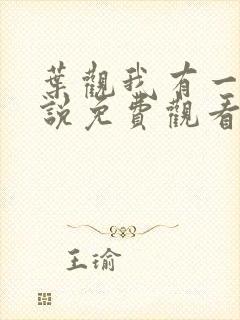 葉觀我有一
說免費觀看
王瑜